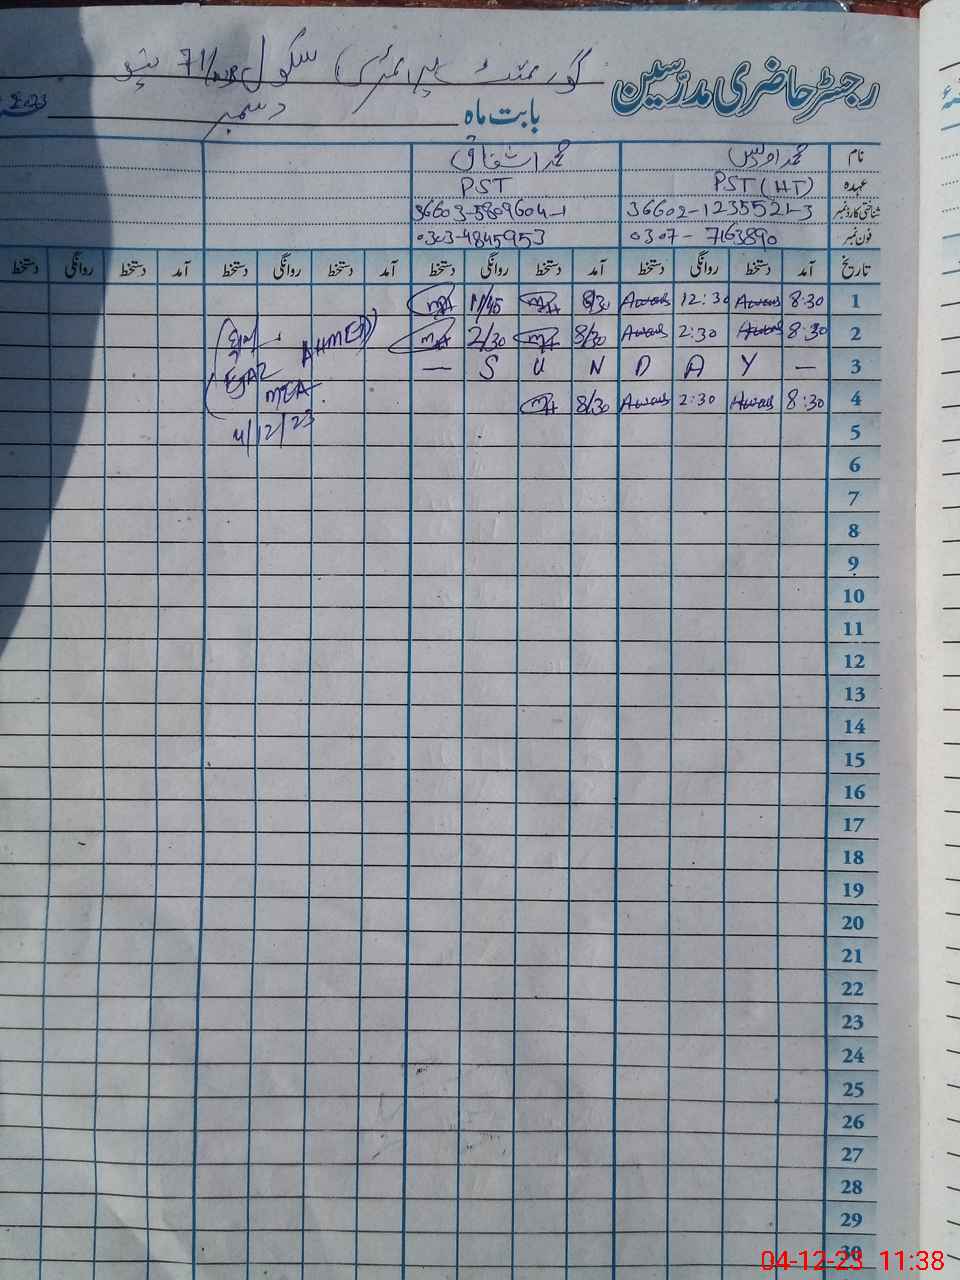 رجسٹر حاضری مدرسین گورنمنٹ پرائمری سکول 71
بابت ماہ دسمبر 2023
نام محمد اویس محمد اشفاق
عہدہ PST (HT) PST
شناختی کارڈ نمبر 36602-1235521-3 36603-5809604-1
فون نمبر 0307-7163890 0303-4845953
تاریخ آمد دستخط روانگی دستخط آمد دستخط روانگی دستخط آمد دستخط روانگی دستخط آمد دستخط روانگی دستخط
1 8:30 Awais 12:30 Awais 8/30 11/45
2 8:30 Awais 2:30 Awais 8/30 2/30
3 — Y A D N U S —
4 8:30 Awais 2:30 Awais 8/30
EJAZ AHMED
MEA
4/12/23
5
6
7
8
9
10
11
12
13
14
15
16
17
18
19
20
21
22
23
24
25
26
27
28
29
30
04-12-23 11:38